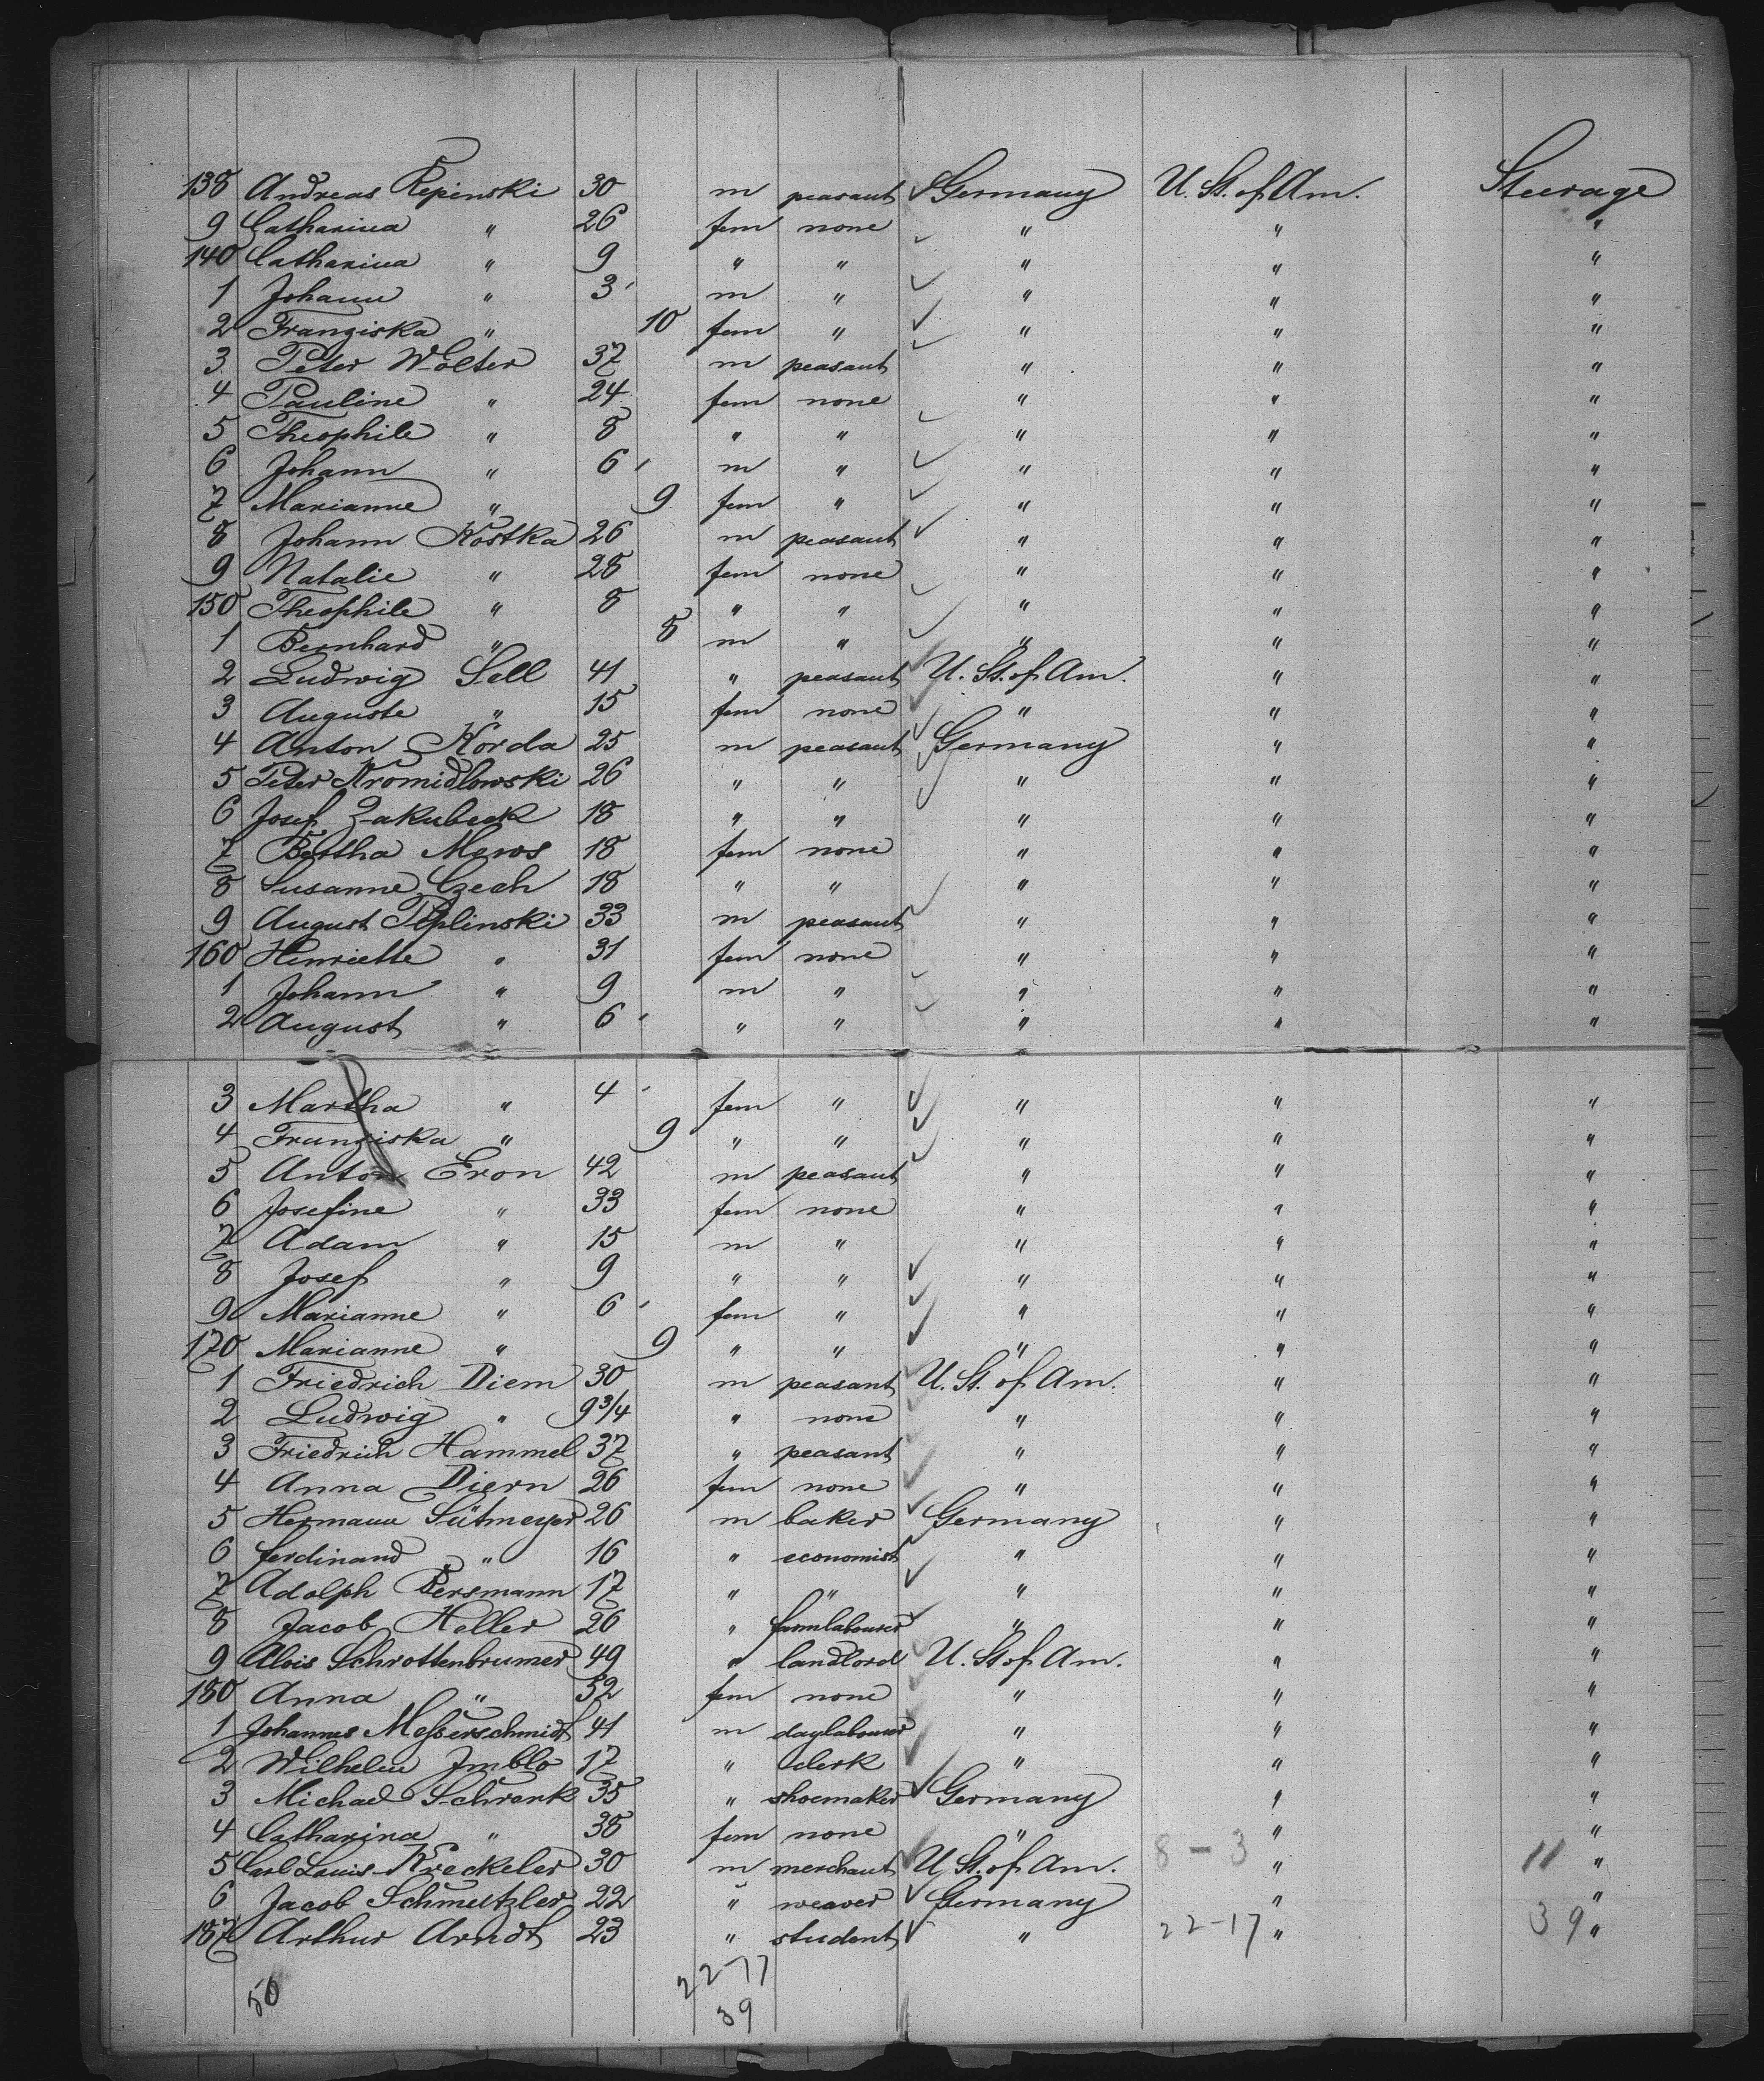 138 Andreas Repinski 30 m peasant Germany U. St. of Am. Steerage
9 Catharina " 26 fem none " " "
140 Catharina " 9 " " " " "
1 Johann " 3 m " " " "
2 Franziska " 10 fem " " " "
3 Peter Wolter 37 m peasant " " "
4 Pauline " 24 fem none " " "
5 Theophile " 8 " " " " "
6 Johann " 6 m " " " "
7 Marianne " 9 fem " " " "
8 Johann Kostka 26 m peasant " " "
9 Natalie " 28 fem none " " "
150 Theophile " 8 " " " " "
1 Bernhard " 8 m " " " "
2 Ludwig Sell 41 " peasant U. St. of Am. " "
3 Auguste " 15 fem none " " "
4 Anton Korda 25 m peasant Germany " "
5 Peter Kromidlowski 26 " " " " "
6 Josef Zakubeck 18 " " " " "
7 Bertha Mews 18 fem none " " "
8 Susanne Czech 18 " " " " "
9 August Peplinski 33 m peasant " " "
160 Henriette " 31 fem none " " "
1 Johann " 9 m " " " "
2 August " 6 " " " " "
3 Martha " 4 fem " " " "
4 Franziska " 9 " " " " "
5 Anton Eron 42 m peasant " " "
6 Josefine " 33 fem none " " "
7 Adam " 15 m " " " "
8 Josef " 9 " " " " "
9 Marianne " 6 fem " " " "
170 Marianne " 9 " " " " "
1 Friedrich Diem 30 m peasant U. St. of Am. " "
2 Ludwig " 9 3/4 " none " " "
3 Friedrich Hammel 37 " peasant " " "
4 Anna Diern 26 fem none " " "
5 Hermann Sütmeyer 26 m baker Germany " "
6 Ferdinand " 16 " economist " " "
7 Adolph Bersmann 17 " " " " "
8 Jacob Heller 26 " farmlabourer " " "
9 Alois Schrottenbrumer 49 " landlord U. St of Am. " "
180 Anna " 52 fem none " " "
1 Johannes Messerschmidt 41 m daylabourer " " "
2 Wilhelm Imblo 17 " clerk " " "
3 Michael Schrenk 35 " shoemaker Germany " "
4 Catharina " 38 fem none " " "
5 Carl Louis Kreckeler 30 m merchant U. St. of Am. 8-3 " 11 "
6 Jacob Schmeltzler 22 " weaver Germany " "
187 Arthur Arndt 23 " student " 22-17 " 39 "
50 22-17
39